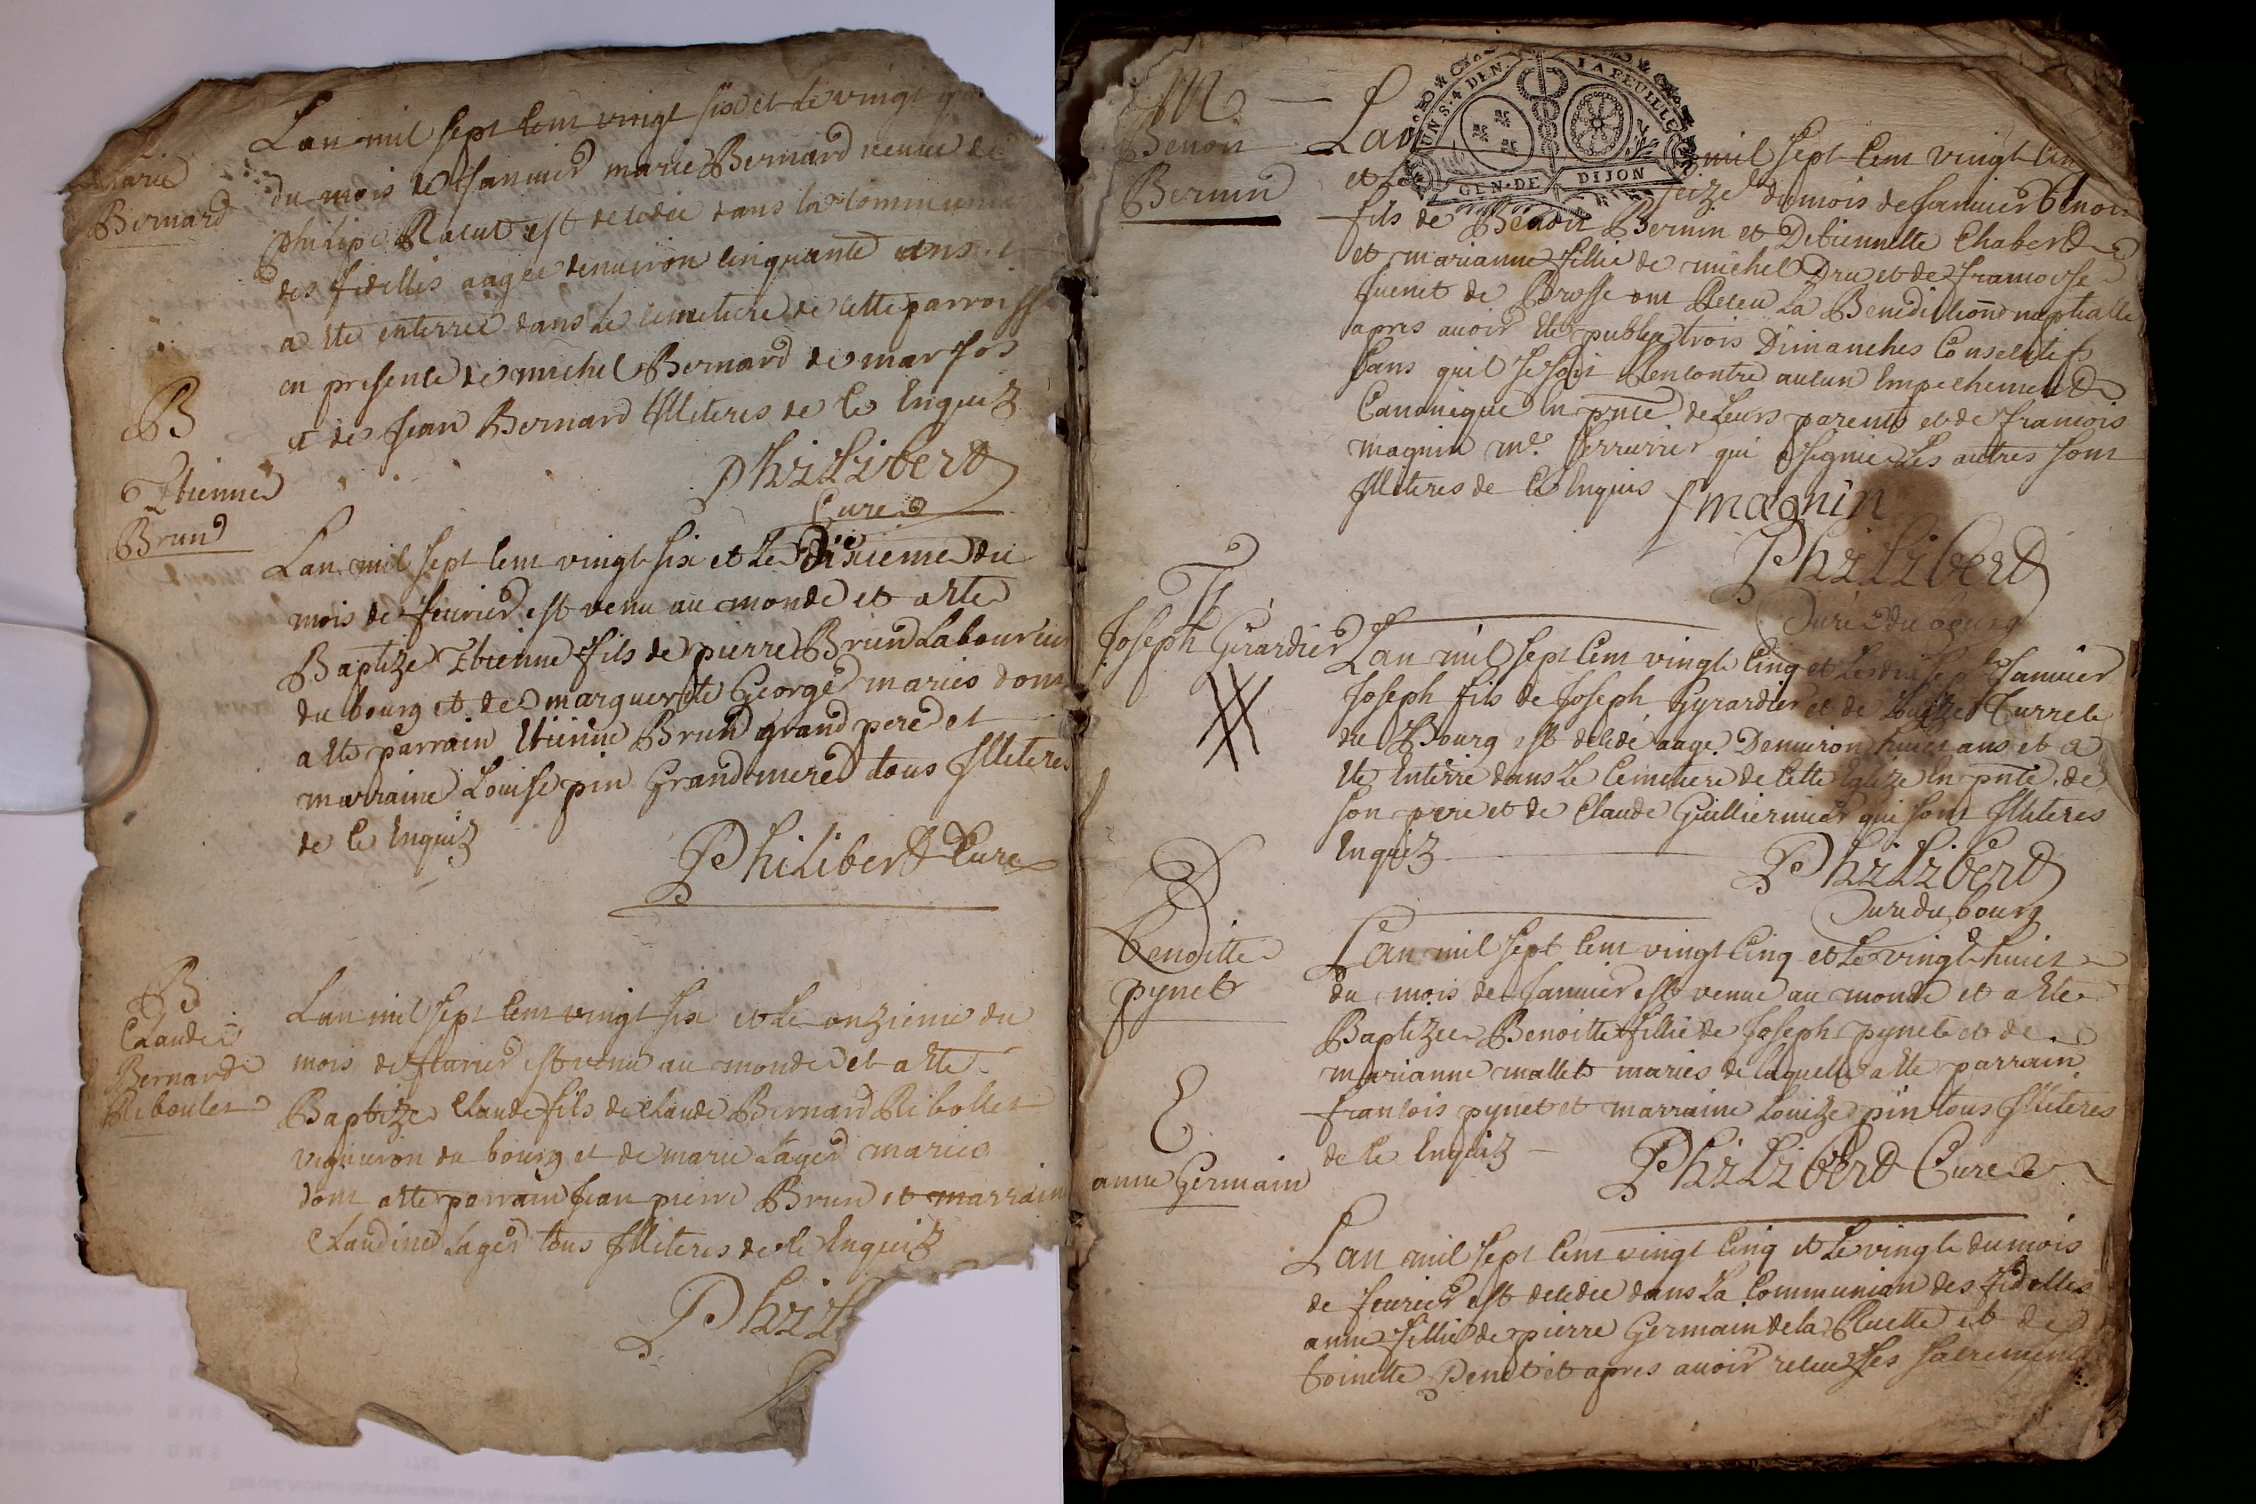 Marie
Bernard
Lan mil sept cent vingt six et le vingt
du mois de Januier marie Bernard veuue de
philipe Racut est decedée dans la Communion
des fidelles aagee denuiron cinquante ans et
a ete enterree dans le cimetiere de cette parroisse
en presence de michel Bernard de
et de Jean Bernard Illiteres de ce Enquiz
Philibert
Curé
B
Etienne
Brun
Lan mil sept cent vingt six et le Dixieme du
mois de feurier est venu au monde et a ete
Baptizé Etienne fils de pierre Brun Laboureur
du bourg et de marguerite George maries dont
a ete parrain Etienne Brun grand pere et
marraine Louise pin Grand mere tous Illiteres
de ce Enquiz
Philibert Cure
B
Claude
Bernard
Ribouler
Lan mil sept cent vingt six et le onzieme du
mois de feurier est venu au monde et a ete
Baptize Claude fils de claude Bernard Ribollet
vigneron du bourg et de marie Lager maries
dont a ete parrain Jean pierre Brun et marraine
Claudine Lager tous Illiteres de ce Enquiz
Phili
M
Benoit
Bernin
UNS. 4 DEN. LA FEUILLE
GEN. DE DIJON
Lan mil sept cent vingt cinq
et le seize du mois de Januier Benoit
fils de Benoit Bernin et Detiennette Chabert
et marianne fillie de michel Dru et de francoise
suenet de Brosse ont Receu La Benediction nuptialle
apres auoir ete publiez trois Dimanches Consecutifs
sans quil se soit Rencontré aucun Empechement
Canonique En pnce de Leurs parents et de francois
magnin me. serrurier qui a signé Les autres sont
Illiteres de ce Enquis
f magnin
Philibert
Curé du bourg
Joseph Girardier
Lan mil sept cent vingt cinq et le dix sept Januier
Joseph fils de Joseph Gyrardier et de Louize Turrel
du Bourg est decedé aagé Denuiron huict ans et a
ete Enterré dans le Cemetiere de cette Eglize En pnce de
son pere et de Claude Guilliermier qui sont Illiteres
Enquiz
Philibert
Curé du bourg
B
benoitte
pynet
Lan mil sept cent vingt Cinq et le vingt huict
du mois de Januier est venue au monde et a ete
Baptizee Benoitte fillie de Joseph pynet et de
marianne mallet maries de laquelle a ete parrain
francois pynet et marraine Louize pin tous Illiteres
de ce Enquiz
Philibert Cure
E
anne Germain
Lan mil sept cent vingt Cinq et le vingt du mois
de feurier est decedee dans La Communion des fidelles
anne fillie de pierre Germain de la Cluette et de
toinette Denet et apres auoir receu Les sacrements